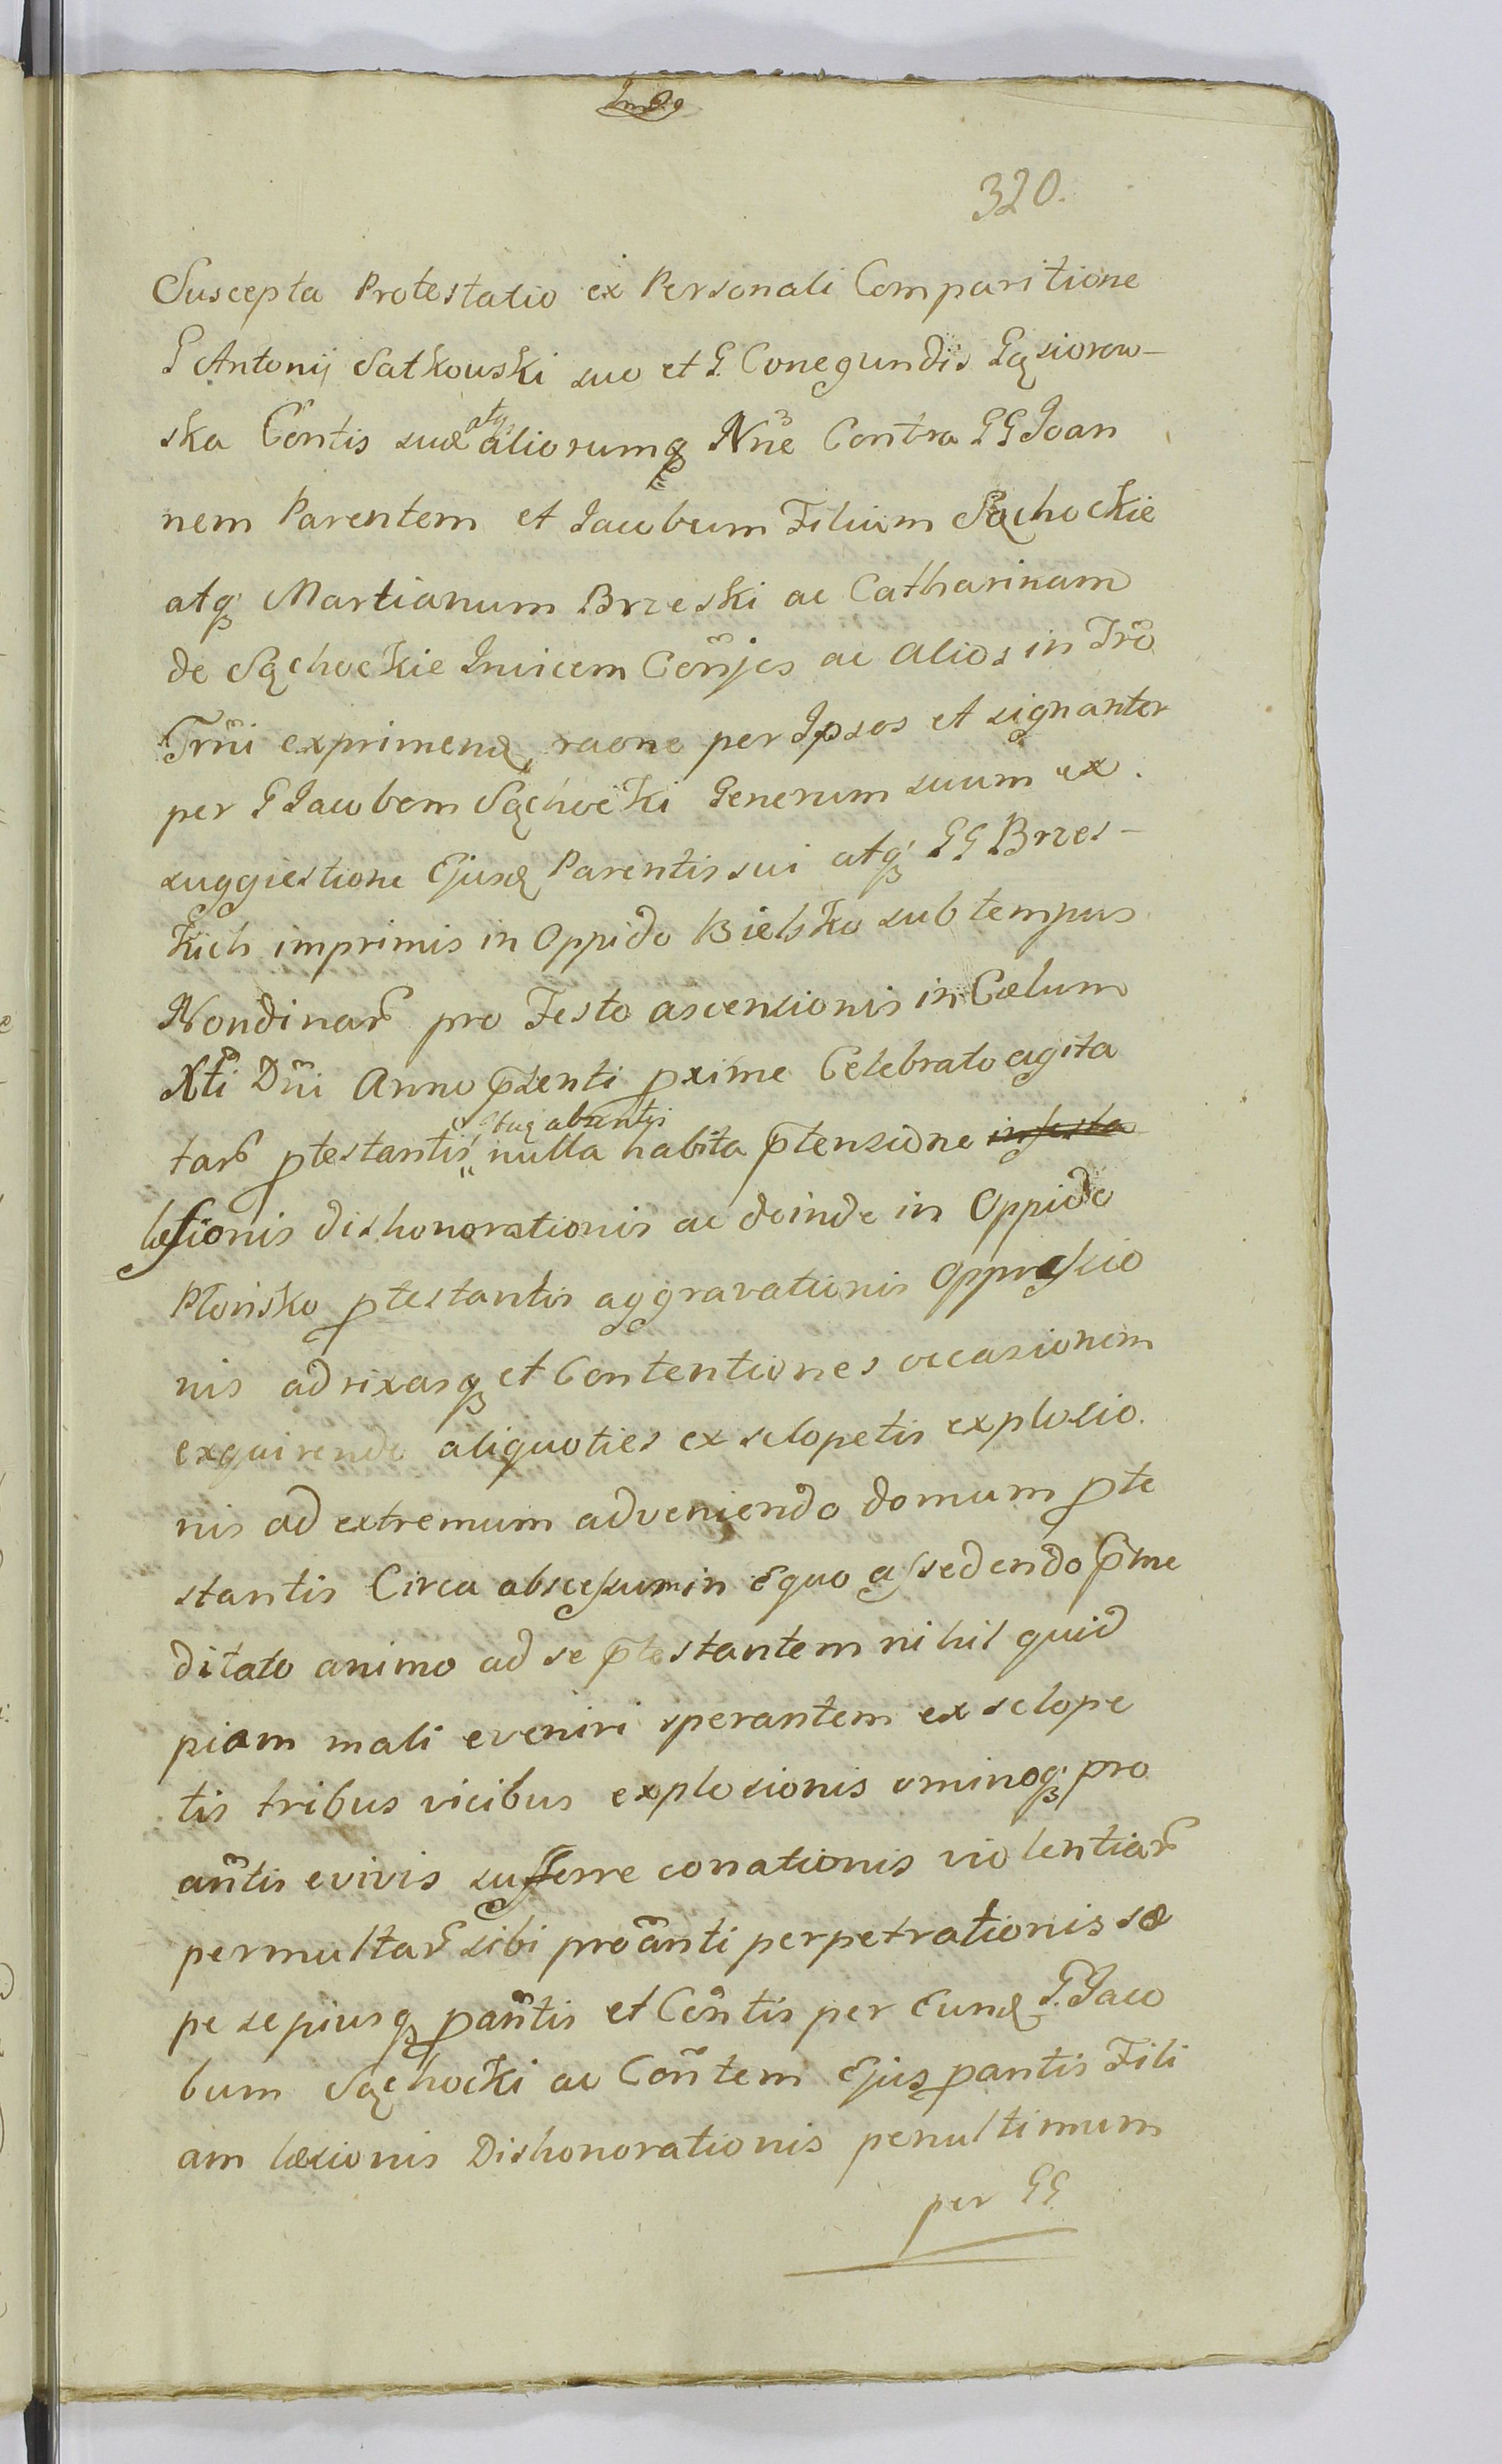 320.
Suscepta Protestatio ex Personali Comparitione
G Antonij Satkowski suo et G. Conegundis Gąsiorow-
ska Cõntis suæ atq aliorumq Nñe Contra GG Joan
nem Parentem et Jacobum Filium Sąchockie
atq Martianum Brzeski ac Catharinam
de Sąchockie Invicem Cõnjes ac alios in Trõ
Trñi exprimend, raone per Ipsos et signanter
per G Jacobem Sąchocki Generum suum ex
suggiestione Ejusd Parentis sui atq GG Brzes-
kich imprimis in Oppido Bielsko sub tempus
Nondinar pro Festo ascensionis in Cælum
Xti Dñi Anno p̃senti proxime Celebrato agita
tar ptestantis nulla habita p̃tensione
læsionis dishonorationis ac deinde in Oppido
Płońsko ptestantis aggravationis Oppressio
nis ad rixasq et Contentiones occasionem
exquirendo aliquoties ex sclopetis explosio
nis ad extremum adveniendo domum pte
stantis Circa abscessum in Equo assedendo p̃me
ditato animo ad se ptestantem nihil quid
piam mali eveniri sperantem ex sclope
tis tribus vicibus explosionis ominoq pro
añtis evivis sufferre conationis violentiar
permultar sibi proãnti perpetrationis sæ
pe sepiusq pañtis et Cõntis per Eund G. Jaco
bum Sąchocki ac Cõntem Ejus pantis Fili
am læsionis Dishonorationis penultimum
per GG